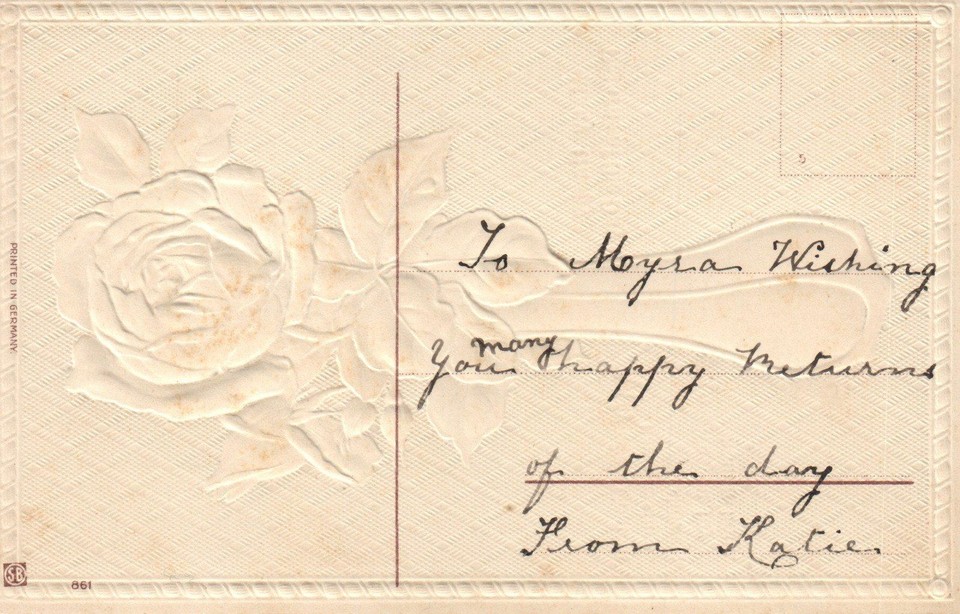 To Myra Wishing
You many happy Returns
of the day
From Katie.
PRINTED IN GERMANY
SB
861
5